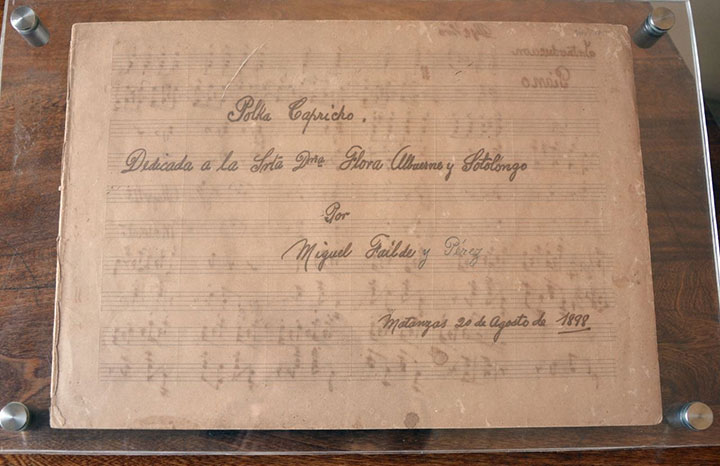 Polka Capricho.
Dedicada a la Srta Dña Flora Albuerne y Sotolongo
Por
Miguel Failde y Pérez
Matanzas 20 de Agosto de 1898
Introduccion
Piano